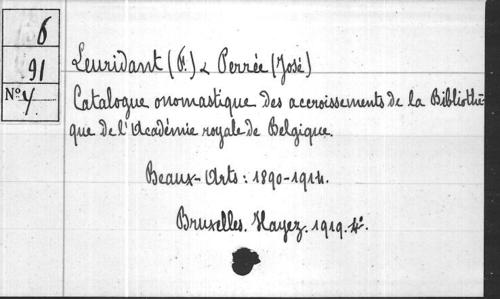 6
91
Nº 4
Leuridant (F.) & Perrée (José)
Catalogue onomastique des accroissements de la Bibliothè-
que de l'Académie royale de Belgique.
Beaux-Arts : 1890-1914.
Bruxelles. Hayez. 1919. 4º.